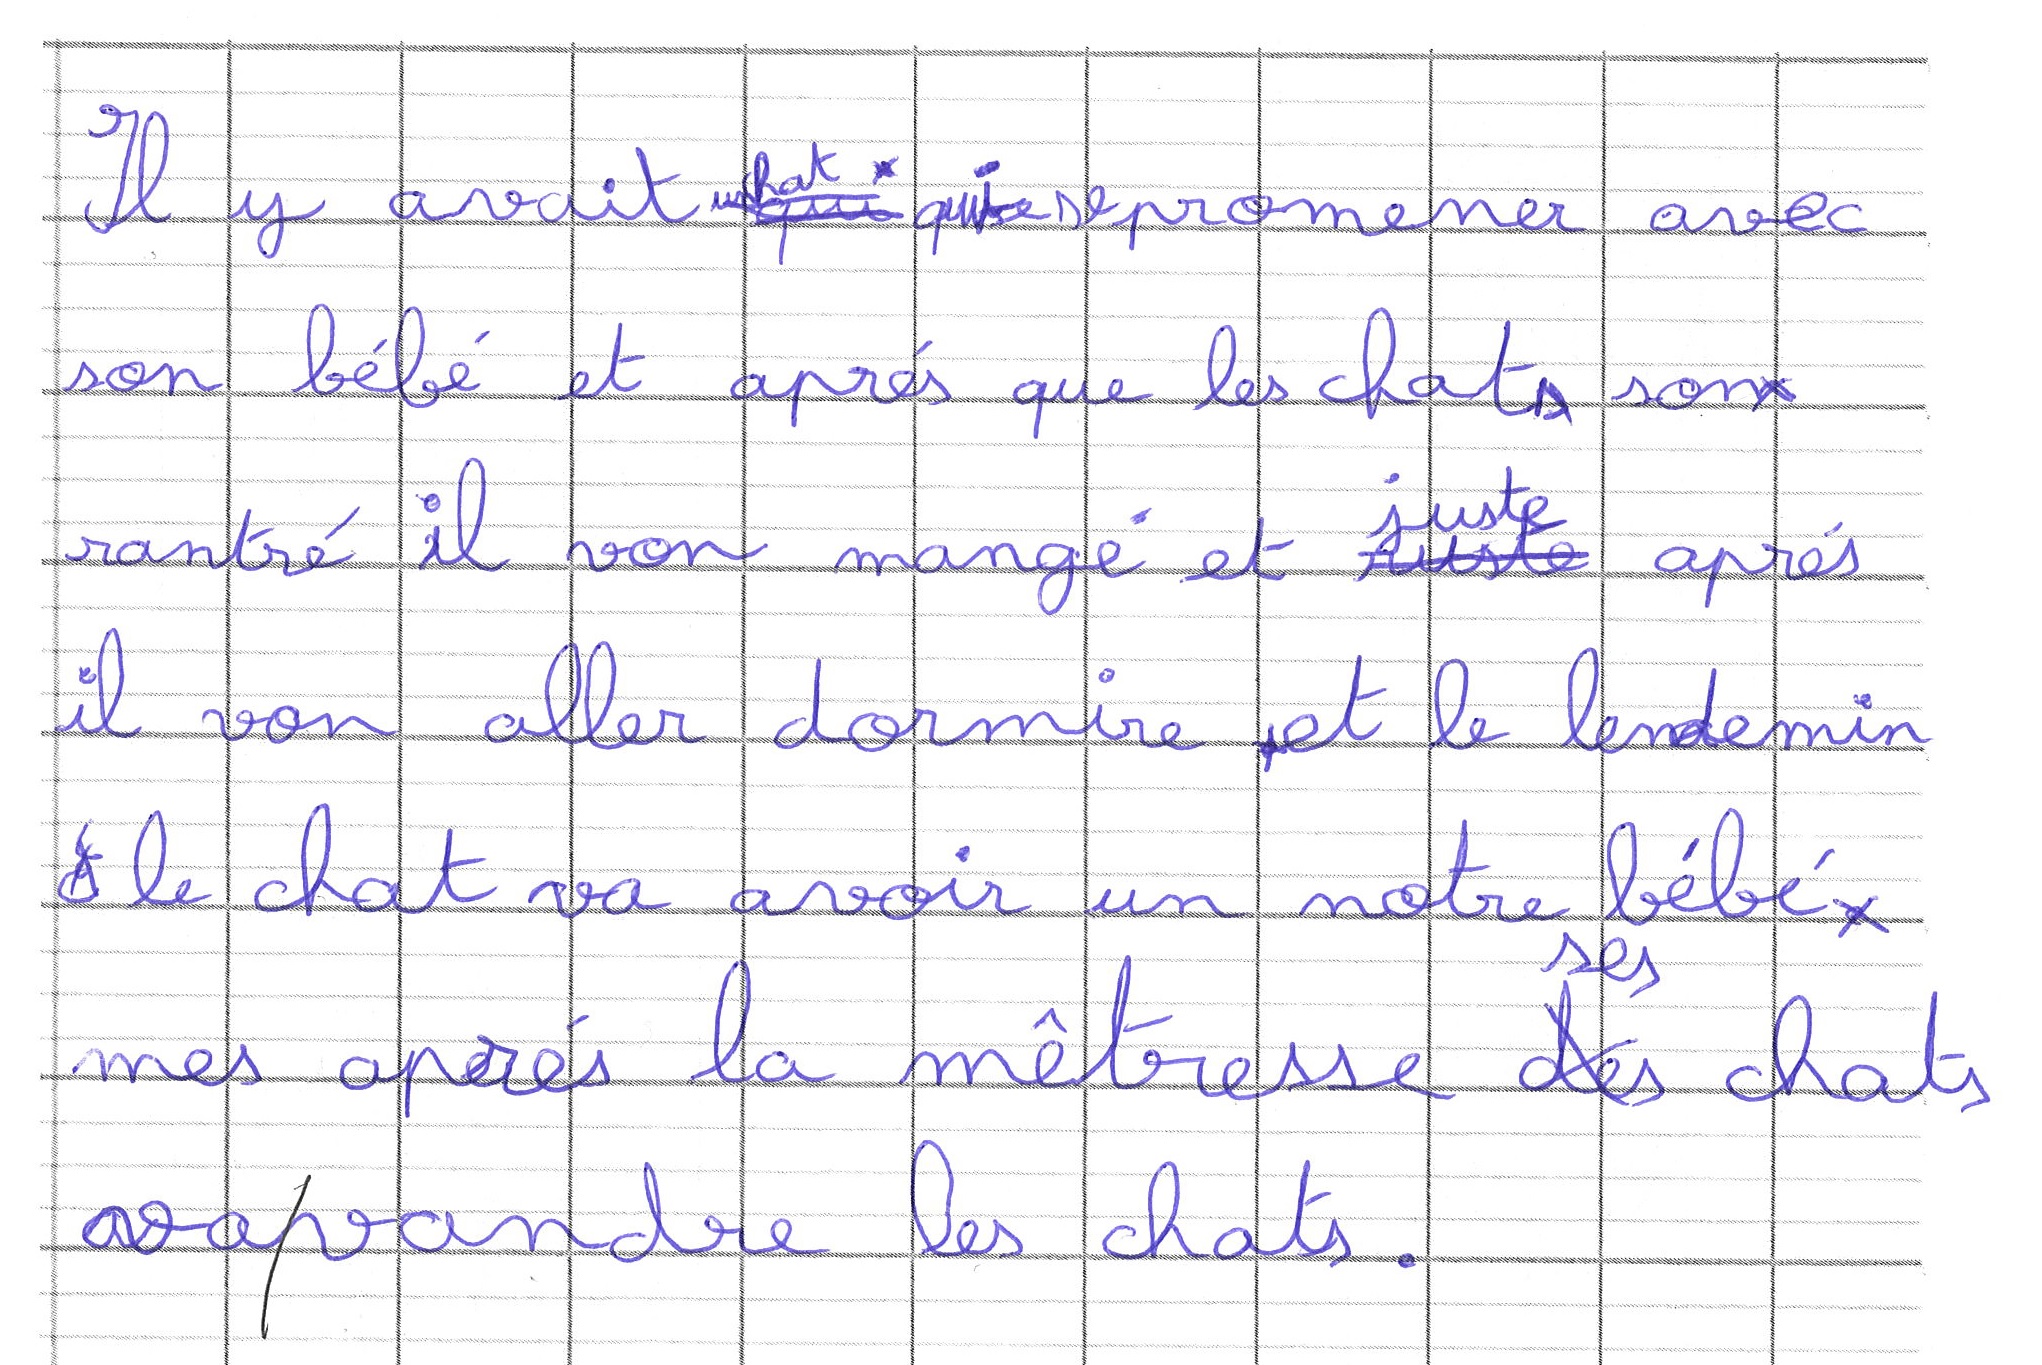 Il y avait un chat qui se promener avec
son bébé et aprés que les chats son
rantré il von mangé et juste aprés
il von aller dormire et le lendemin
le chat va avoir un notre bébé
mes aprés la mêtresse ses chats
va vandre les chats.